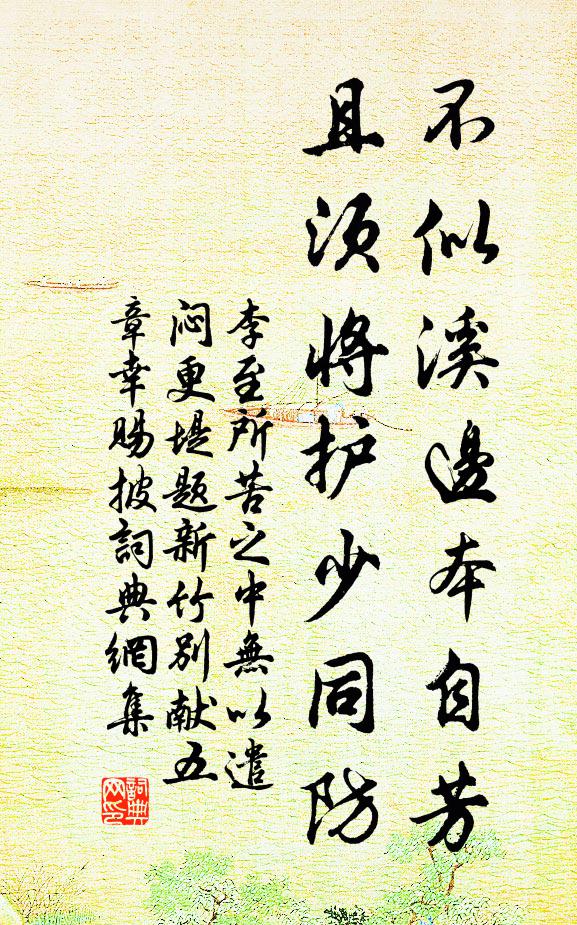 不似溪邊本自芳
且须将护少同防
李至所苦之中無以遣
闷更堤题新竹别献五
章幸赐披詞典網集
詞典網印